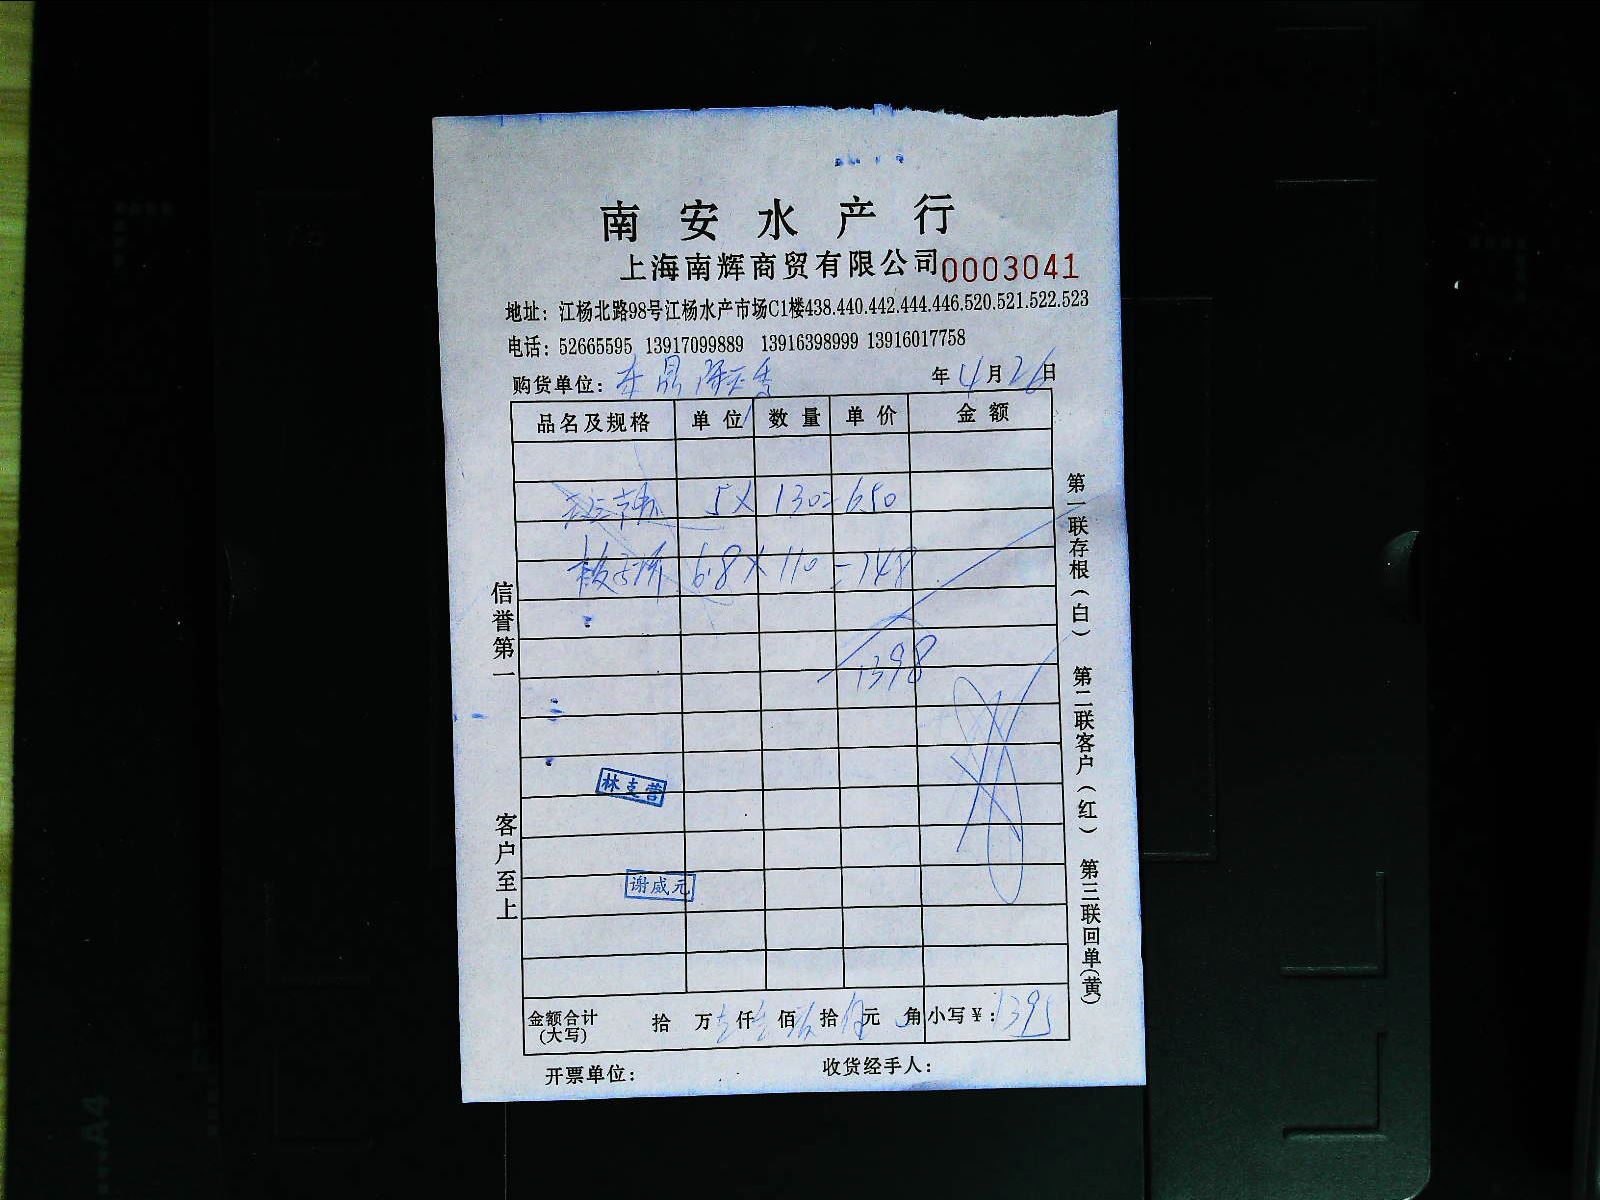 南安水产行
上海南辉商贸有限公司 0003041
地址：江杨北路98号江杨水产市场C1楼438.440.442.444.446.520.521.522.523
电话：52665595 13917099889 13916398999 13916017758
购货单位： 年 4 月 26 日
品名及规格 单位 数量 单价 金额
5 X 130=650
6.8 X 110=748
1398
林支营
谢威元
金额合计(大写) 拾 万 仟 佰 拾 元 角 小写¥：1395
开票单位： 收货经手人：
信誉第一 客户至上
第一联存根(白) 第二联客户(红) 第三联回单(黄)